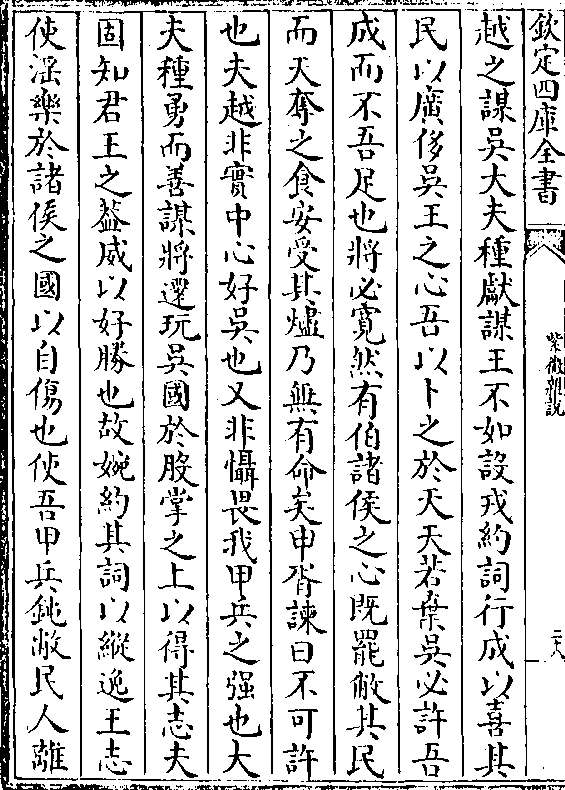 欽定四庫全書
紫微雜說
二十八
越之謀吳大夫種獻謀王不如設戎約詞行成以喜其
民以廣侈吳王之心吾以卜之於天天若棄吳必許吾
成而不吾足也將必寛然有伯諸侯之心既罷敝其民
而天奪之食安受其燼乃無有命矣申胥諫曰不可許
也夫越非實中心好吳也又非懾畏我甲兵之强也大
夫種勇而善謀將還玩吳國於股掌之上以得其志夫
固知君王之葢威以好勝也故婉約其詞以縱逸王志
使滛樂於諸侯之國以自傷也使吾甲兵鈍敝民人離